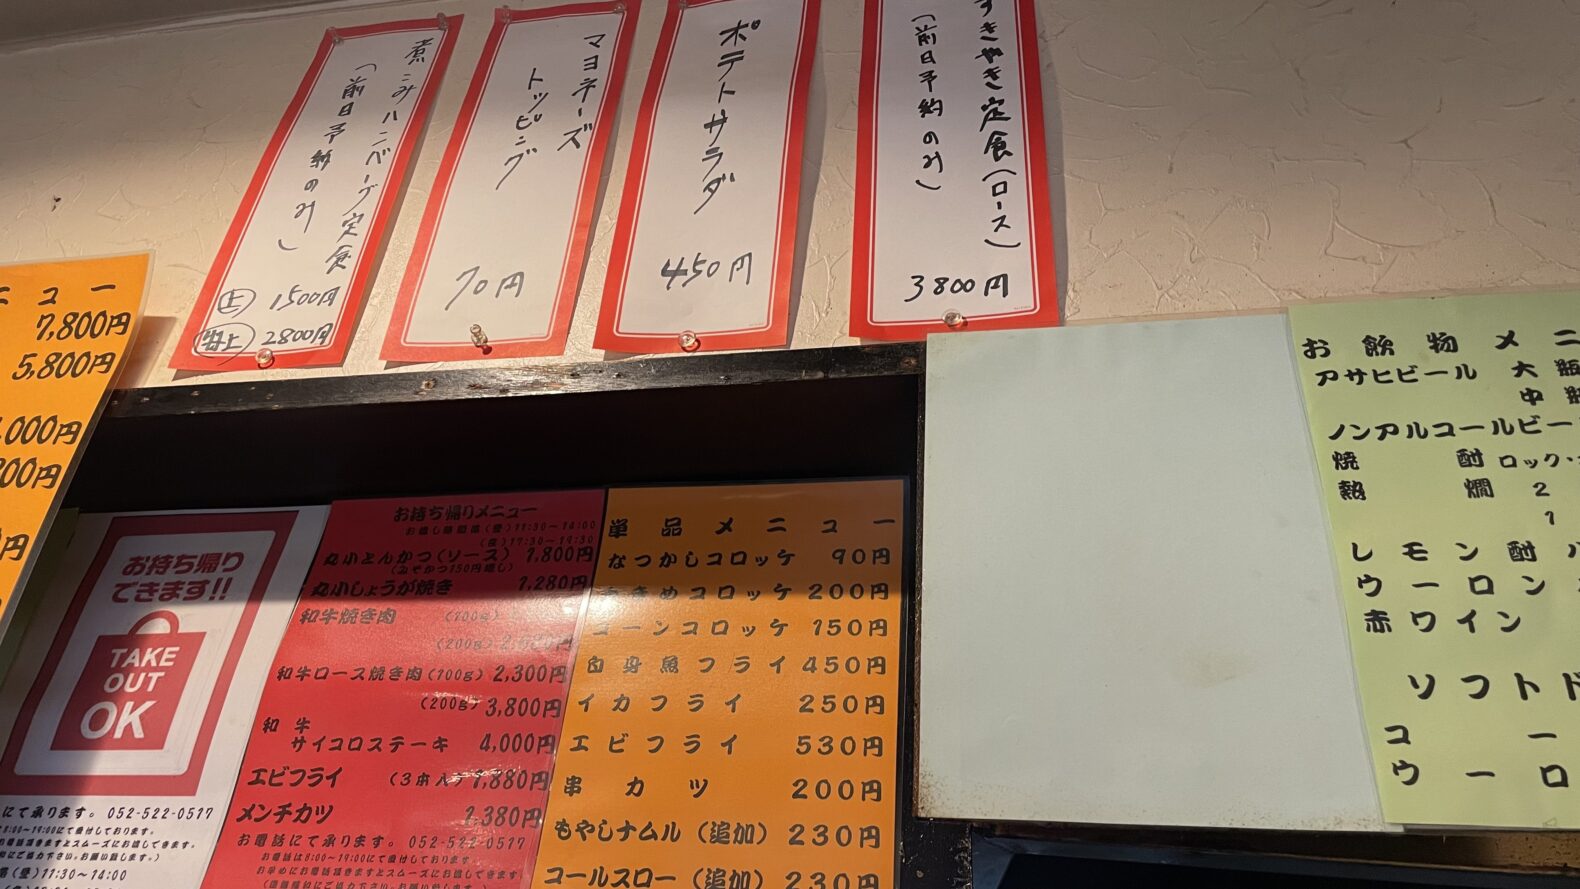 すきやき定食(ロース)
(前日予約のみ)
3800円
ポテトサラダ
450円
マヨネーズ
トッピング
70円
煮こみハンバーグ定食
(前日予約のみ)
上 1500円
特上 2800円
ニュー
7,800円
5,800円
,000円
00円
円
お持ち帰り
できます!!
TAKE
OUT
OK
にて承ります。052-522-0517
8:00〜19:00にて受付しております。
お電話頂きますとスムーズにお渡しできます。
にご協力下さい。お願い致します。)
(昼)11:30〜14:00
お持ち帰りメニュー
お渡し時間帯(昼)11:30〜14:00
(夜)17:30〜19:30
丸小とんかつ(ソース) 1,800円
(みそかつ150円増し)
丸小しょうが焼き 1,280円
和牛焼き肉 (100g)
(200g)
和牛ロース焼き肉(100g) 2,300円
(200g) 3,800円
和牛
サイコロステーキ 4,000円
エビフライ (3本入) 1,880円
メンチカツ 1,380円
お電話にて承ります。052-522-0517
お電話は8:00〜19:00にて受付しております。
お早めにお電話頂きますとスムーズにお渡しできます。
単品メニュー
なつかしコロッケ 90円
コロッケ 200円
コーンコロッケ 150円
白身魚フライ 450円
イカフライ 250円
エビフライ 530円
串カツ 200円
もやしナムル(追加) 230円
コールスロー(追加) 230円
お飲物メニ
アサヒビール 大瓶
中瓶
ノンアルコールビー
焼酎 ロック・
熱燗 2
1
レモン酎ハ
ウーロン
赤ワイン
ソフトド
コー
ウーロ